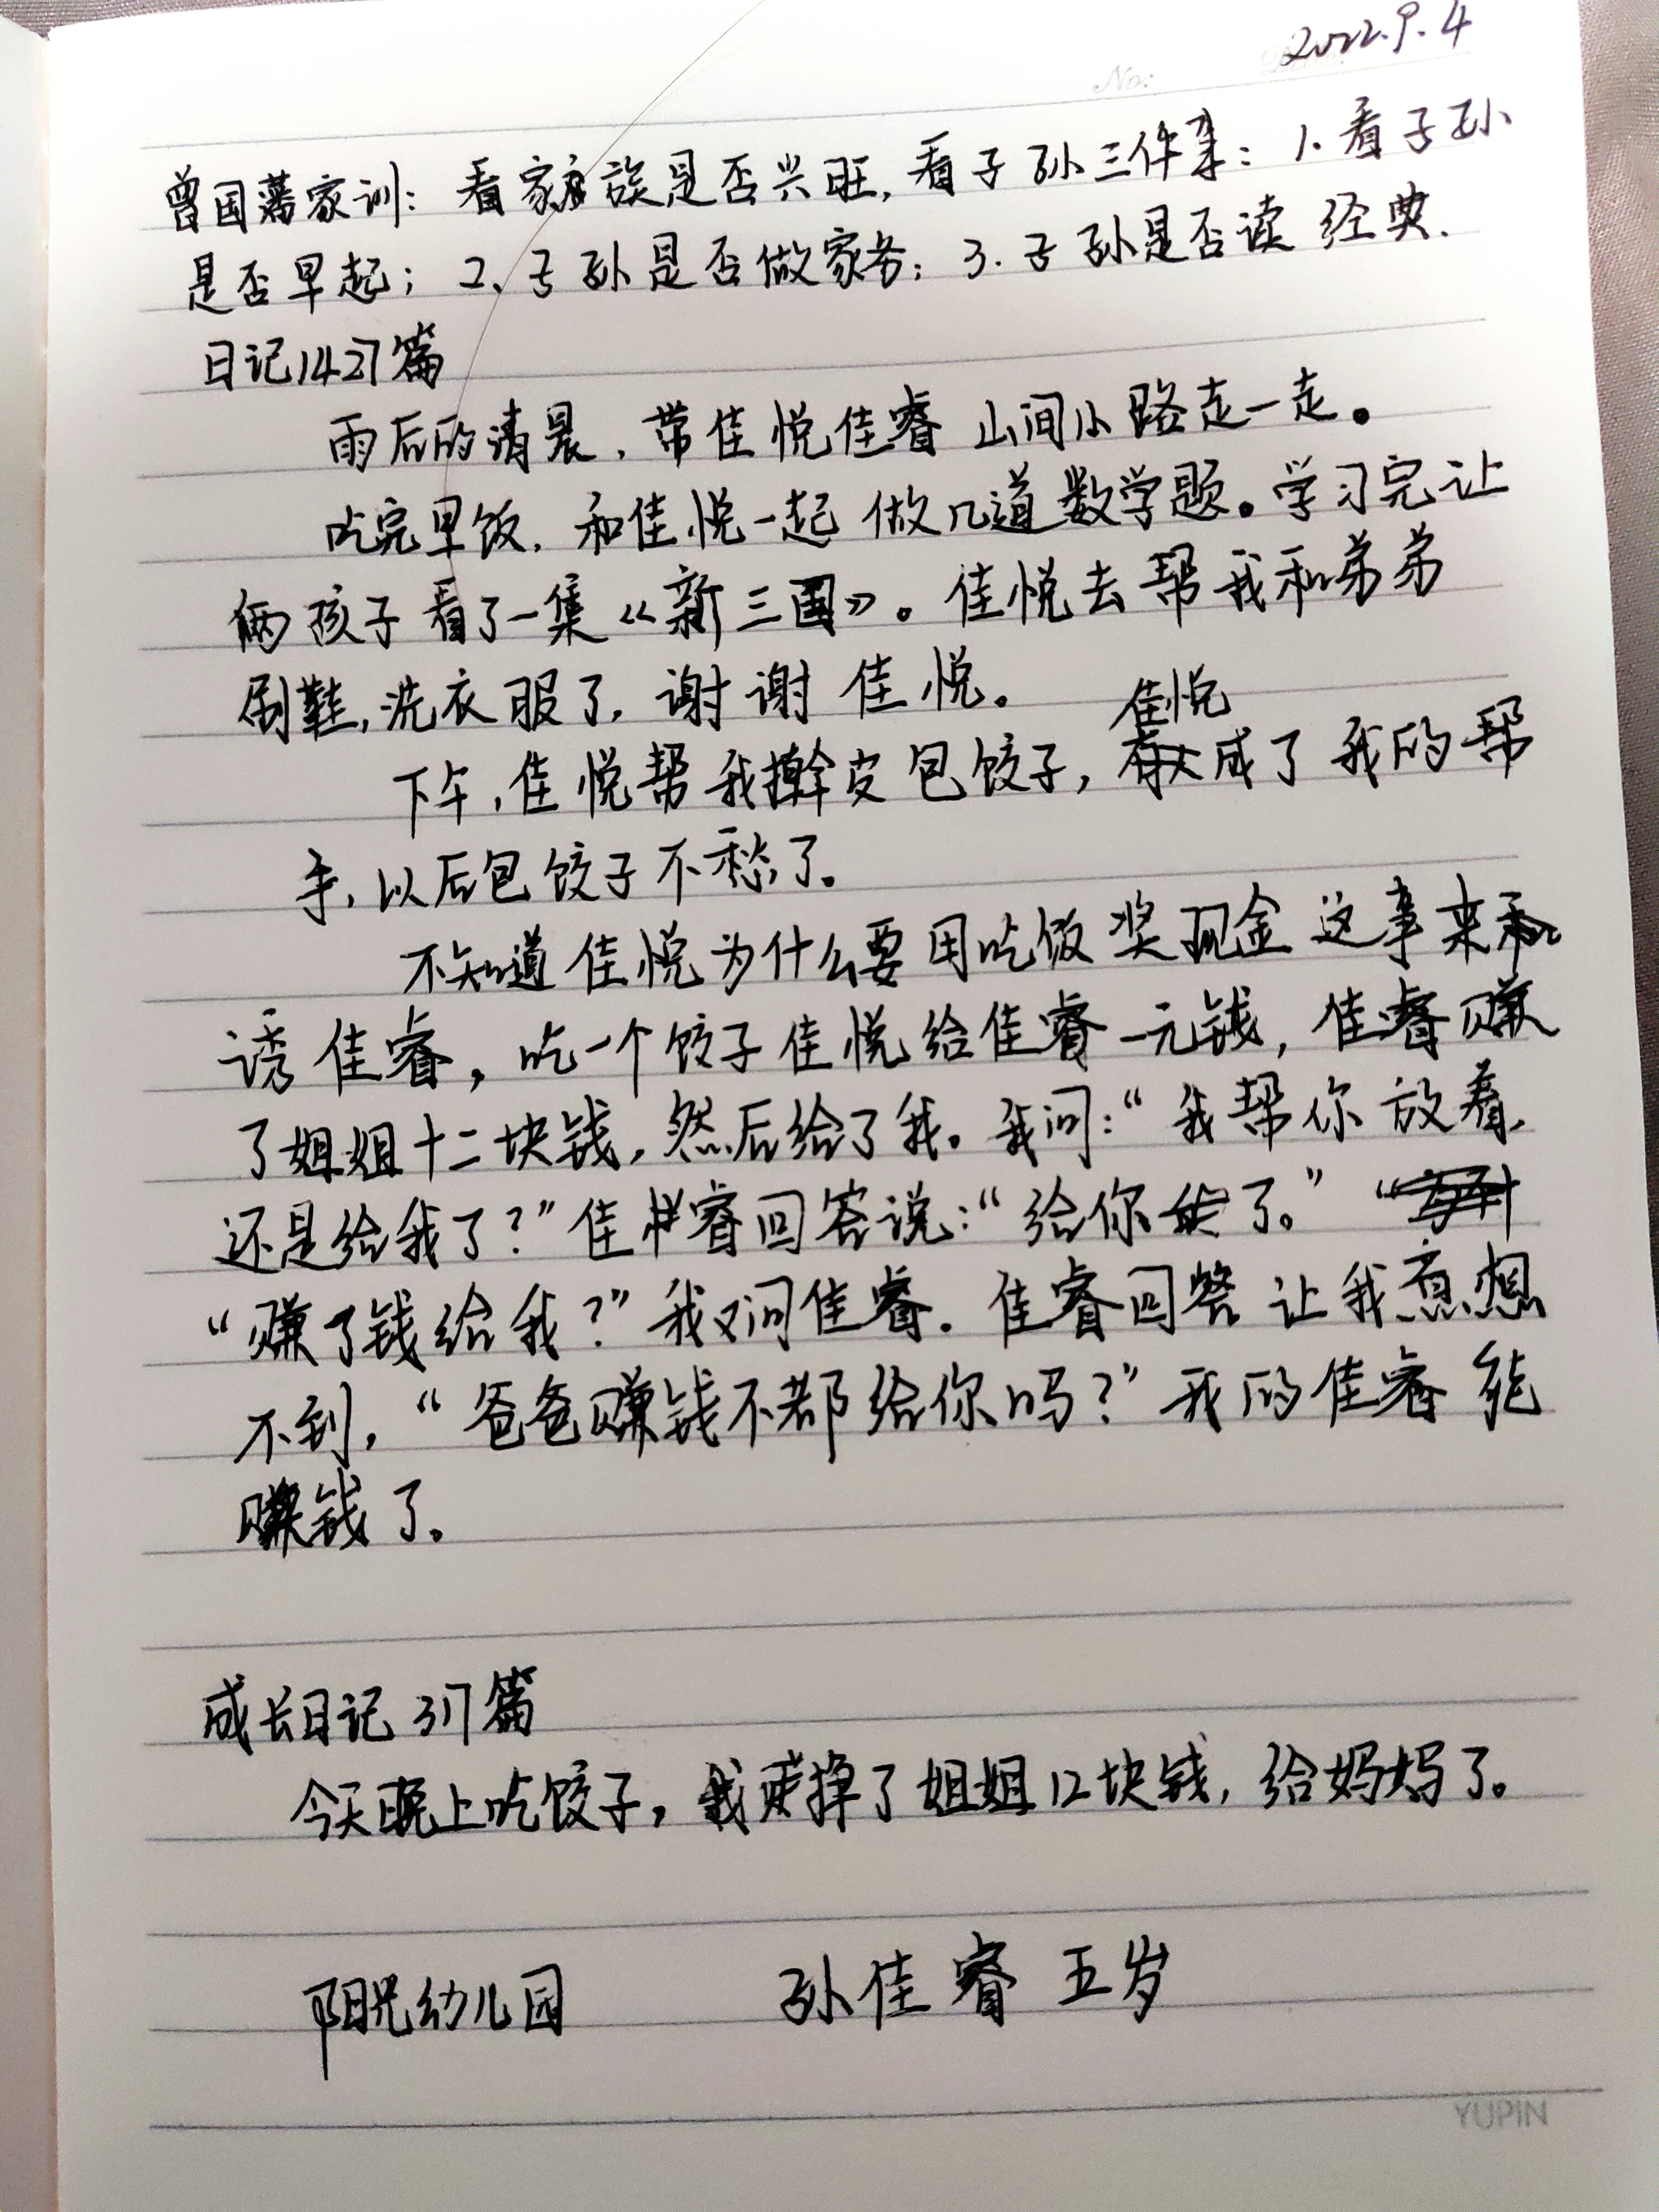 2022.9.4
No:
曾国藩家训：看家族是否兴旺，看子孙三件事：1.看子孙
是否早起；2、子孙是否做家务；3.子孙是否读经典.
日记1427篇
雨后的清晨，带佳悦佳睿山间小路走一走。
吃完早饭，和佳悦一起做几道数学题。学习完让
俩孩子看了一集《新三国》。佳悦去帮我和弟弟
刷鞋，洗衣服了，谢谢佳悦。
佳悦
下午，佳悦帮我擀皮包饺子，成了我的帮
手，以后包饺子不愁了。
不知道佳悦为什么要用吃饭奖现金这事来
诱佳睿，吃一个饺子佳悦给佳睿一元钱，佳睿赚
了姐姐十二块钱，然后给了我。我问：“我帮你放着，
还是给我了？”佳睿回答说：“给你了。”
“赚了钱给我？”我又问佳睿.佳睿回答让我意想
不到，“爸爸赚钱不都给你吗？”我的佳睿能
赚钱了。
成长日记317篇
今天晚上吃饺子，我挣了姐姐12块钱，给妈妈了。
阳光幼儿园 孙佳睿 五岁
YUPIN